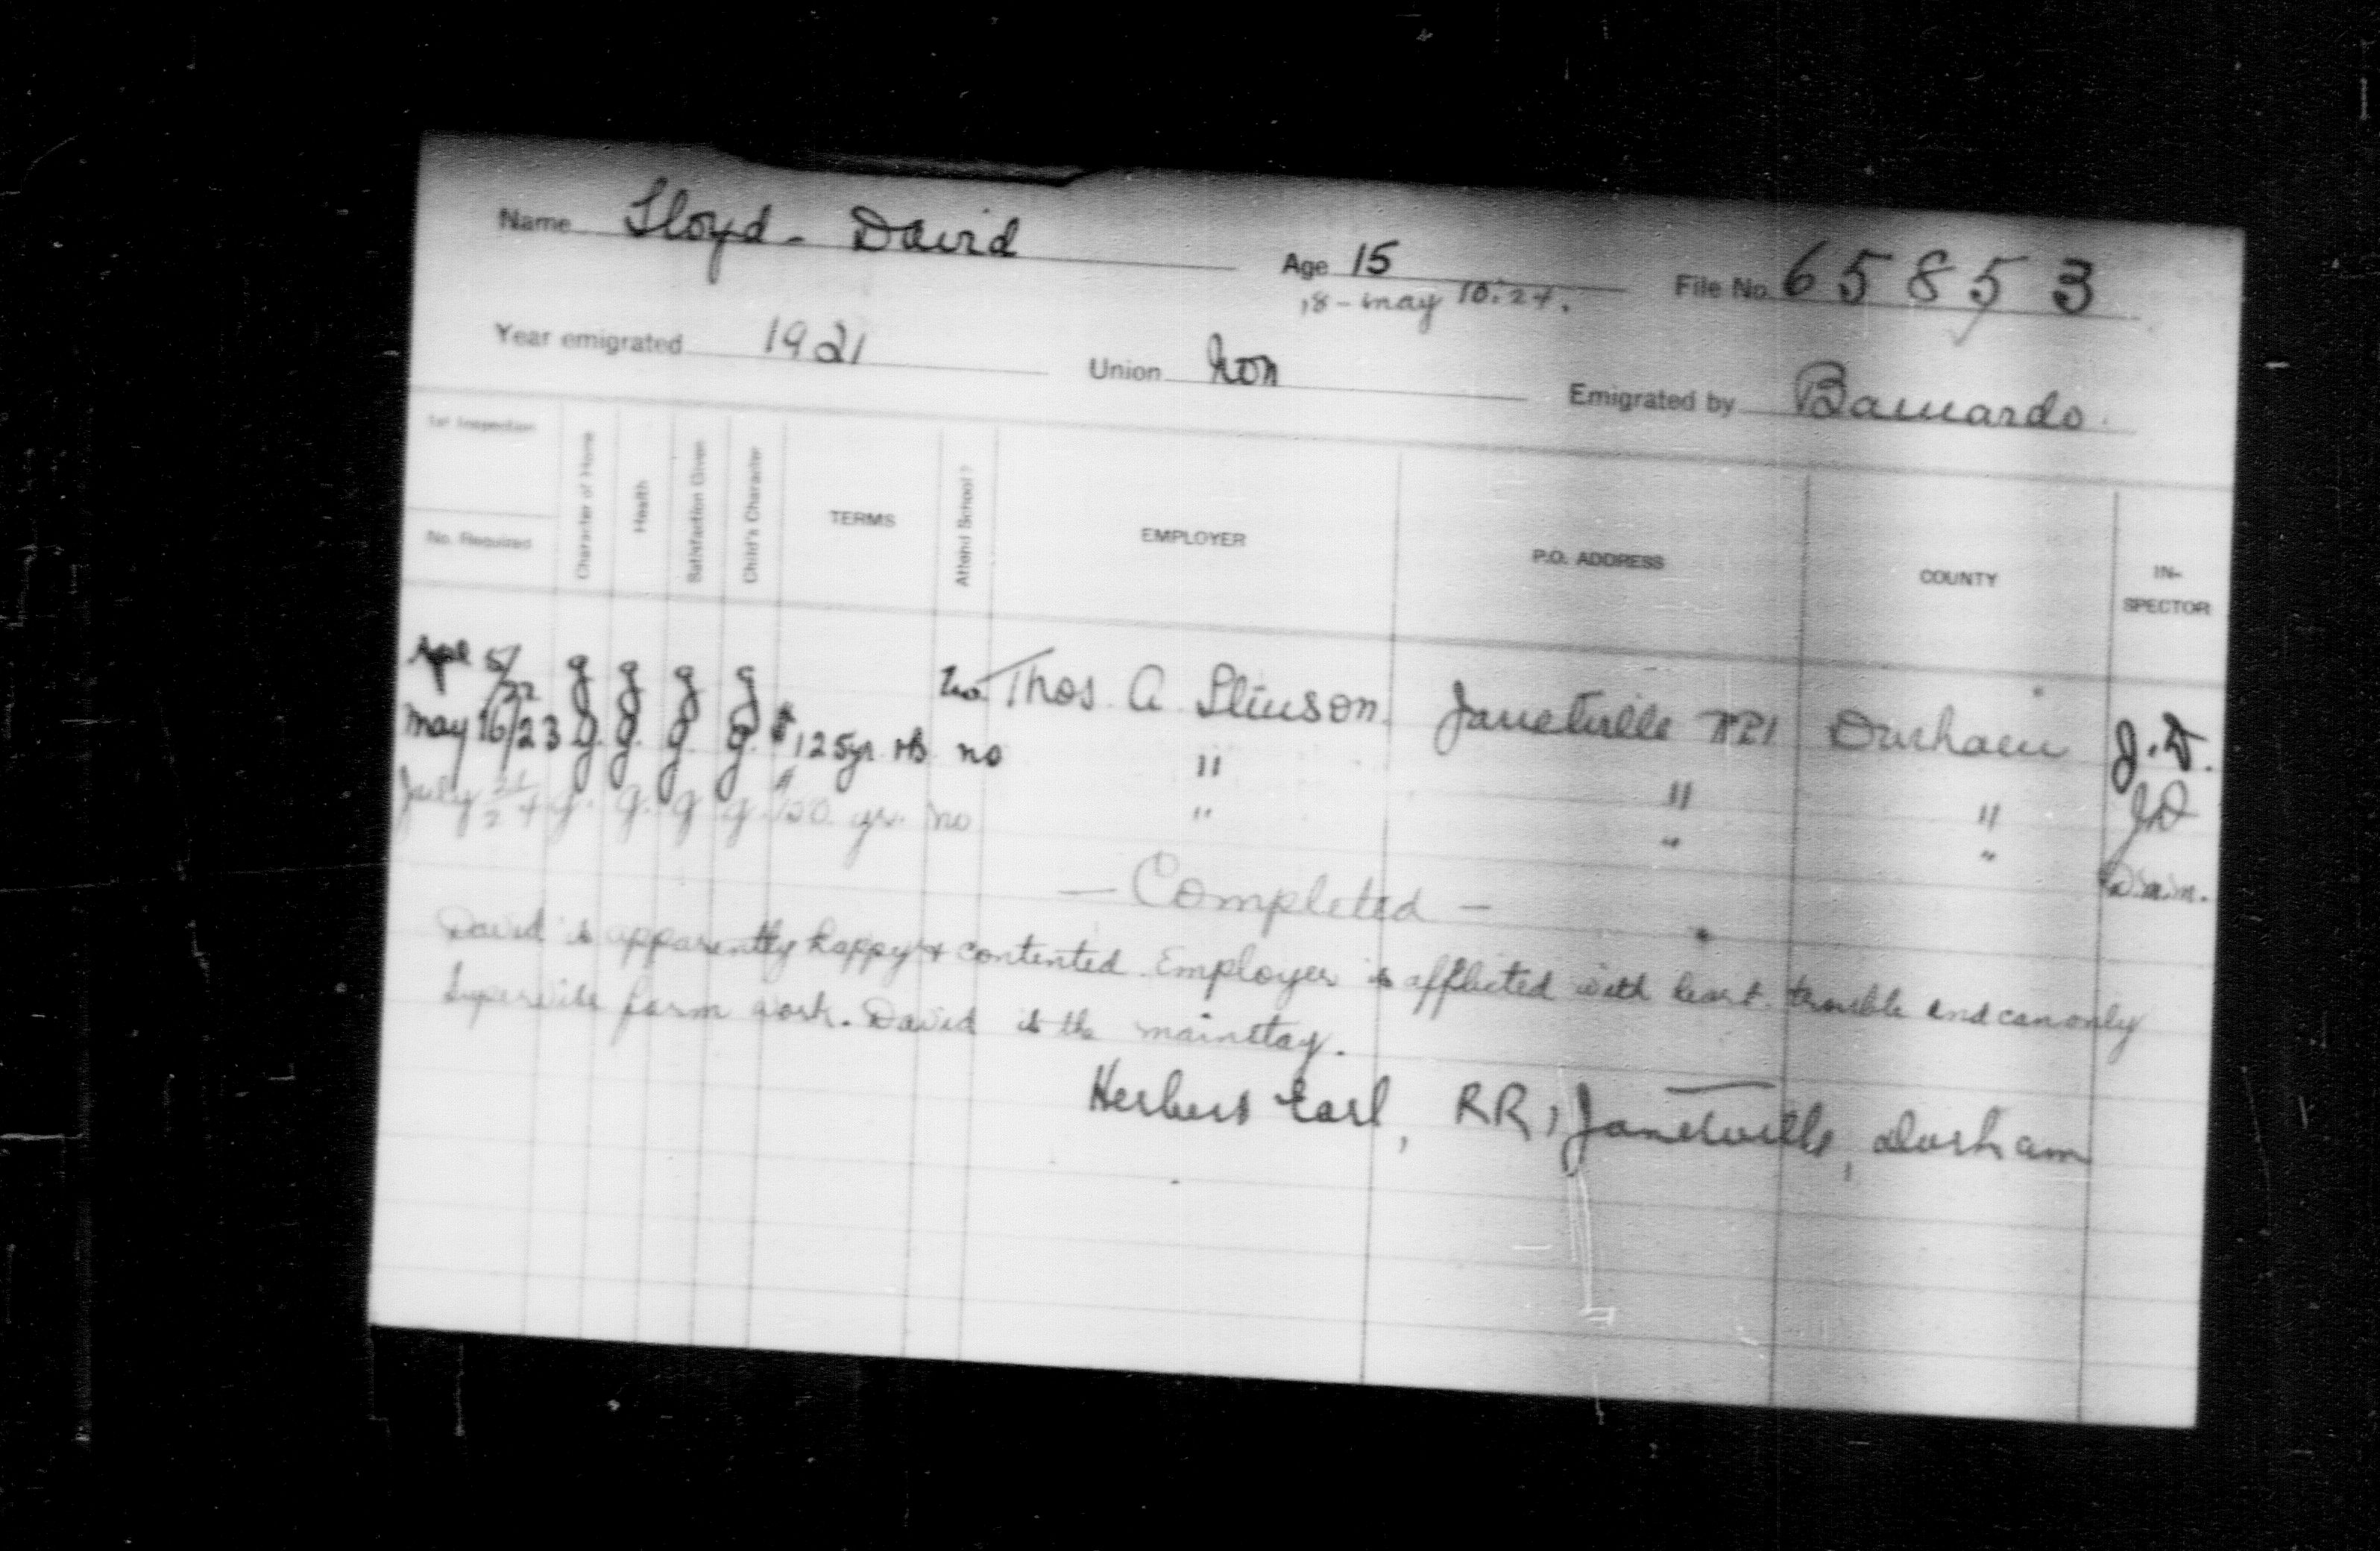 Name Lloyd - David Age 15 File No. 65853
18 - may 10:24.
Year emigrated 1921 Union Non Emigrated by Barnardo.
1st Inspection
No. Required
Character of Home
Health
Satisfaction Given
Child's Character
TERMS
Attend School?
EMPLOYER
P.O. ADDRESS
COUNTY
IN-
SPECTOR
Apl 5/22 g g g g no Thos A Stinson Janetville RR1 Durham J.D.
May 16/23 g. g. g. g. $125yr. no " " " JD
July 24 g. g. g g. $150. yr. no " " "
— Completed —
David is apparently happy & contented. Employer is afflicted with heart trouble and can only
supervise farm work. David is the mainstay.
Herbert Earl, RR1 Janetville, Durham